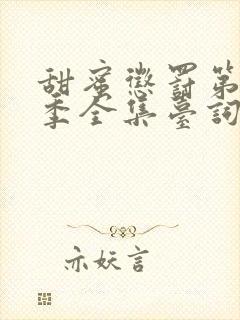 甜蜜懲罰第
季全集臺詞
亦妖言